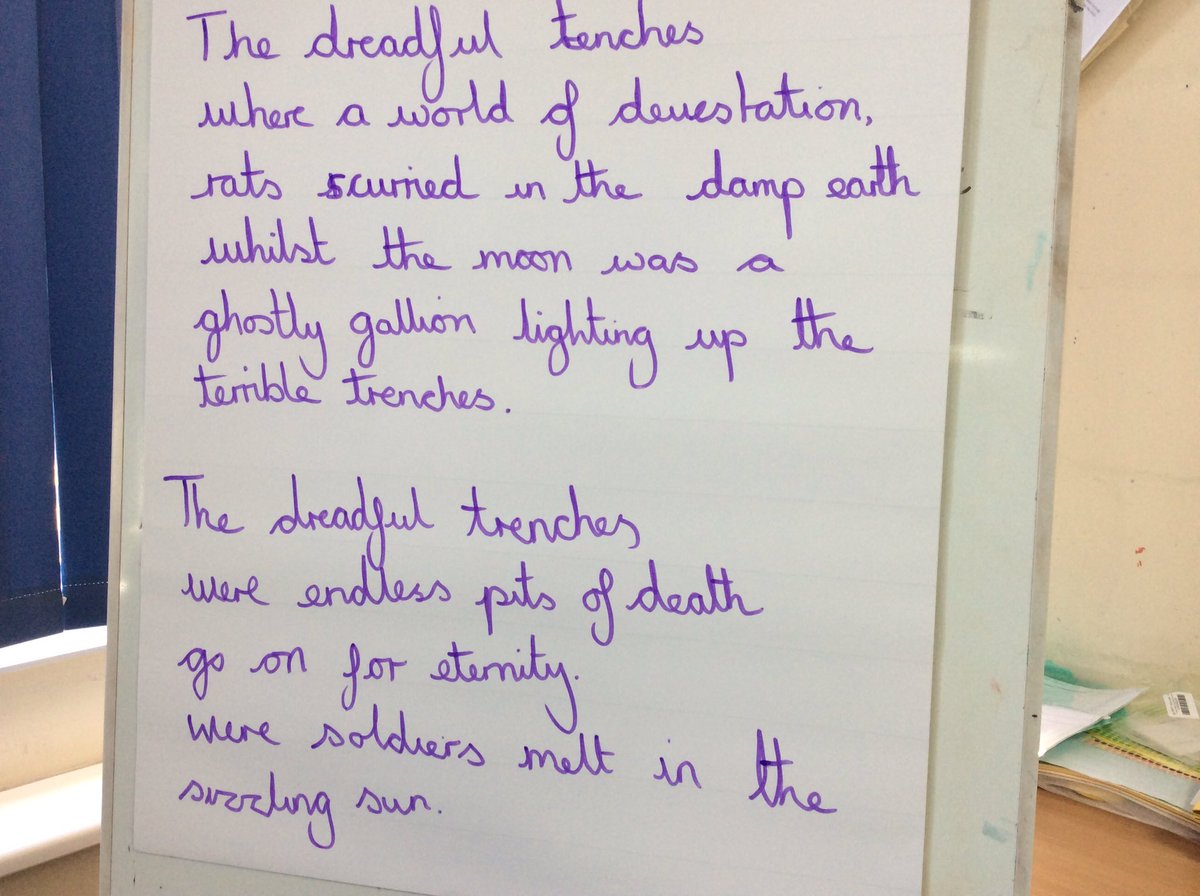 The dreadful tenches
where a world of devestation,
rats scurried in the damp earth
whilst the moon was a
ghostly gallion lighting up the
terrible trenches.
The dreadful trenches
were endless pits of death
go on for eternity.
were soldiers melt in the
sizzling sun.